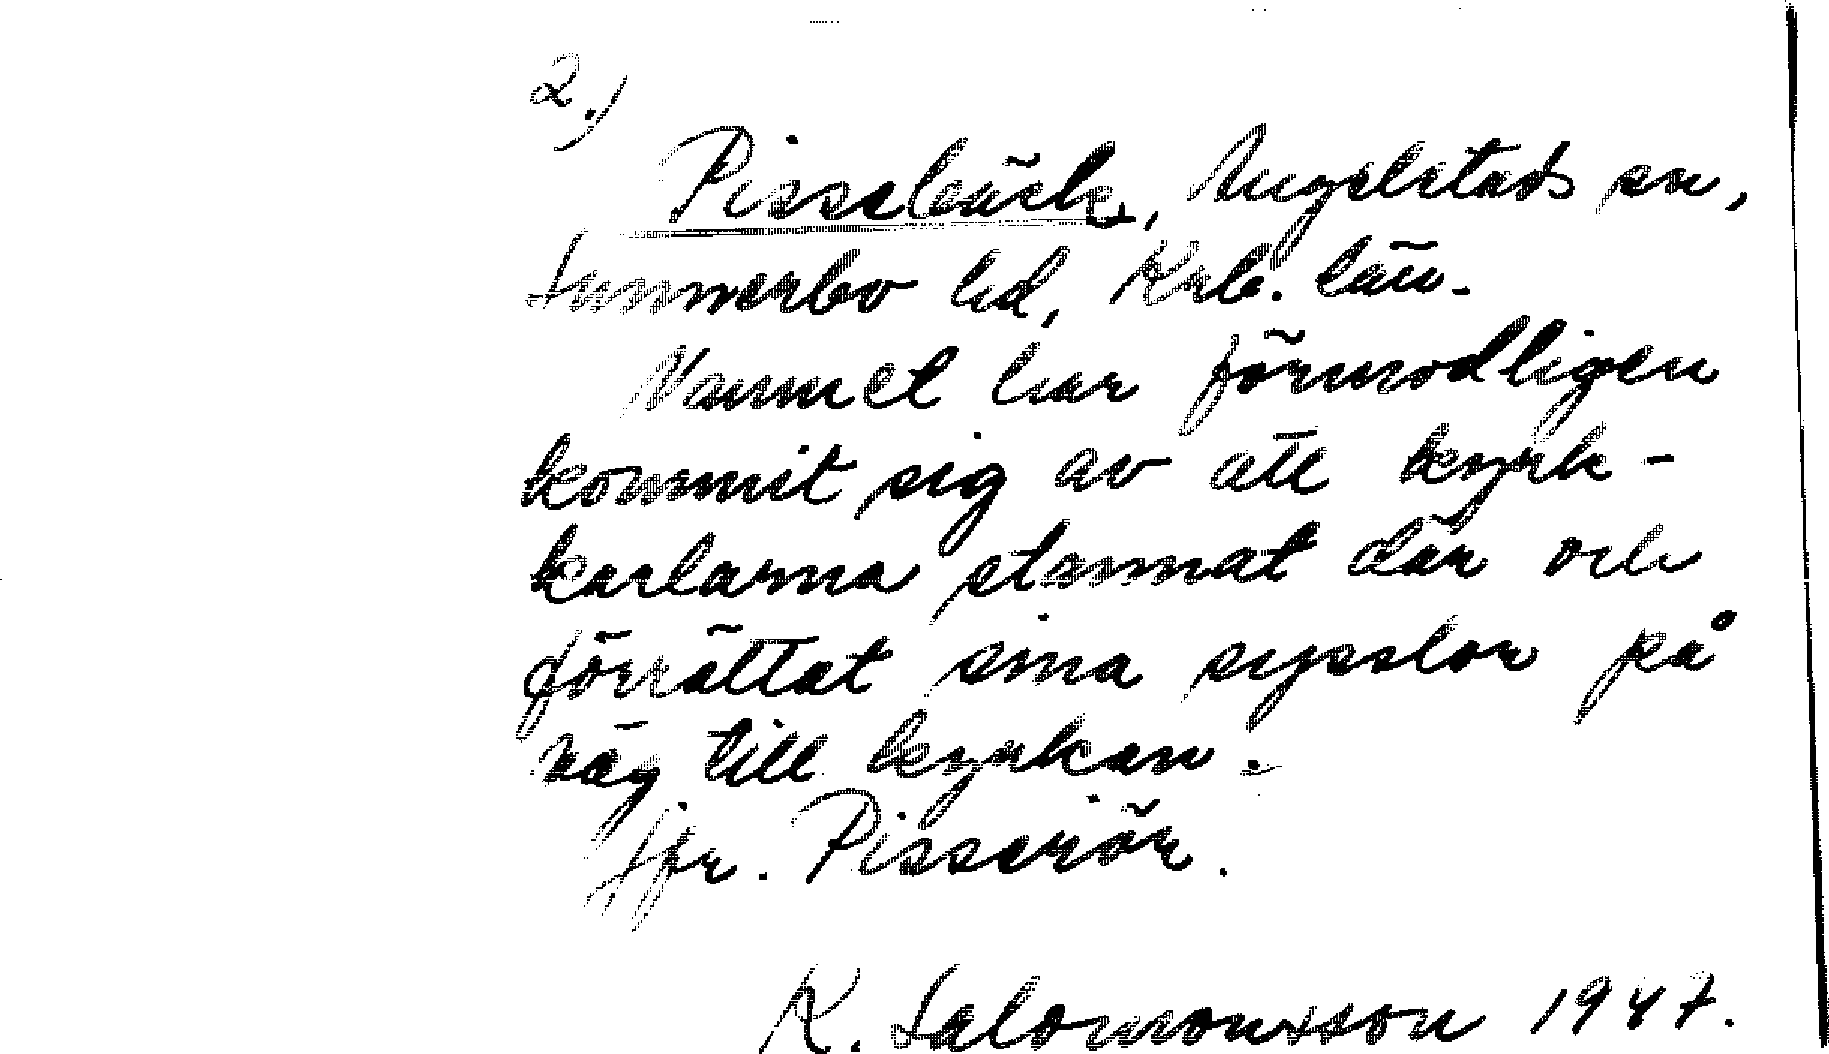 2.)
Pissebäck, Angelstads sn,
Sunnerbo hd, Krb. län.
Namnet har förmodligen
kommit sig av att kyrk-
karlarna stannat där och
förrättat sina sysslor på
väg till kyrkan.
Jfr. Pisserör.
K. Salomonsson 1947.